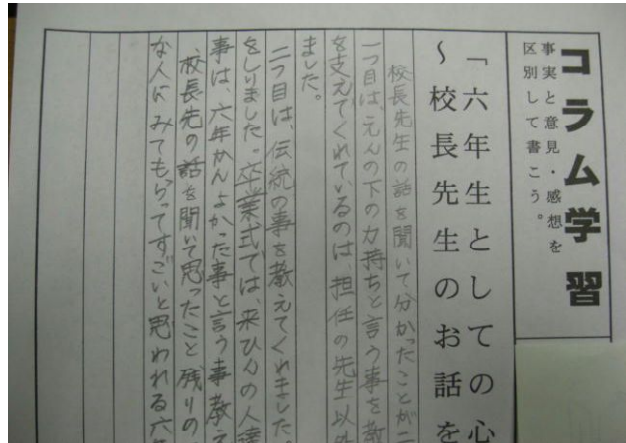 コラム学習
事実と意見・感想を
区別して書こう。
「六年生としての心
～校長先生のお話を
校長先生の話を聞いて分かったことが二
一つ目は、えんの下の力持ちと言う事を教
を支えてくれているのは、担任の先生以外
ました。
二つ目は、伝統の事を教えてくれました。
をしりました。卒業式では、来ひんの人達
事は、六年かんよかった事と言う事教え
校長先の話を聞いて思ったこと残りの
な人に みてもらってすごいと思われる六年